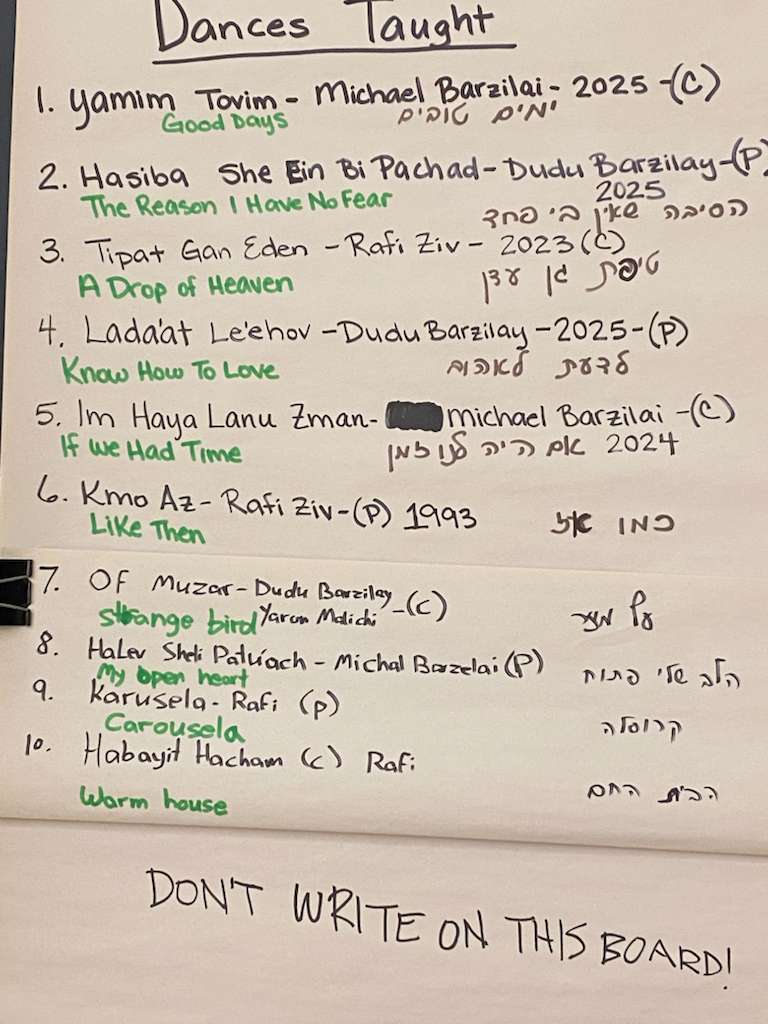 Dances Taught
1. Yamim Tovim - Michael Barzilai - 2025 - (C)
Good Days ימים טובים
2. Hasiba She Ein Bi Pachad - Dudu Barzilay - (P)
2025
The Reason I Have No Fear הסיבה שאין בי פחד
3. Tipat Gan Eden - Rafi Ziv - 2023 (C)
A Drop of Heaven טיפת גן עדן
4. Lada'at Le'ehov - Dudu Barzilay - 2025 - (P)
Know How To Love לדעת לאהוב
5. Im Haya Lanu Zman - Michael Barzilai - (C)
If We Had Time אם היה לנו זמן 2024
6. Kmo Az - Rafi Ziv - (P) 1993
Like Then כמו אז
7. OF Muzar - Dudu Barzilay - (C)
strange bird Yaron Malichi עף מוזר
8. HaLev Sheli Patuach - Michal Barzelai (P)
My open heart הלב שלי פתוח
9. Karusela - Rafi (p)
Carousela קרוסלה
10. Habayit Hacham (c) Rafi
Warm house הבית החם
DON'T WRITE ON THIS BOARD!